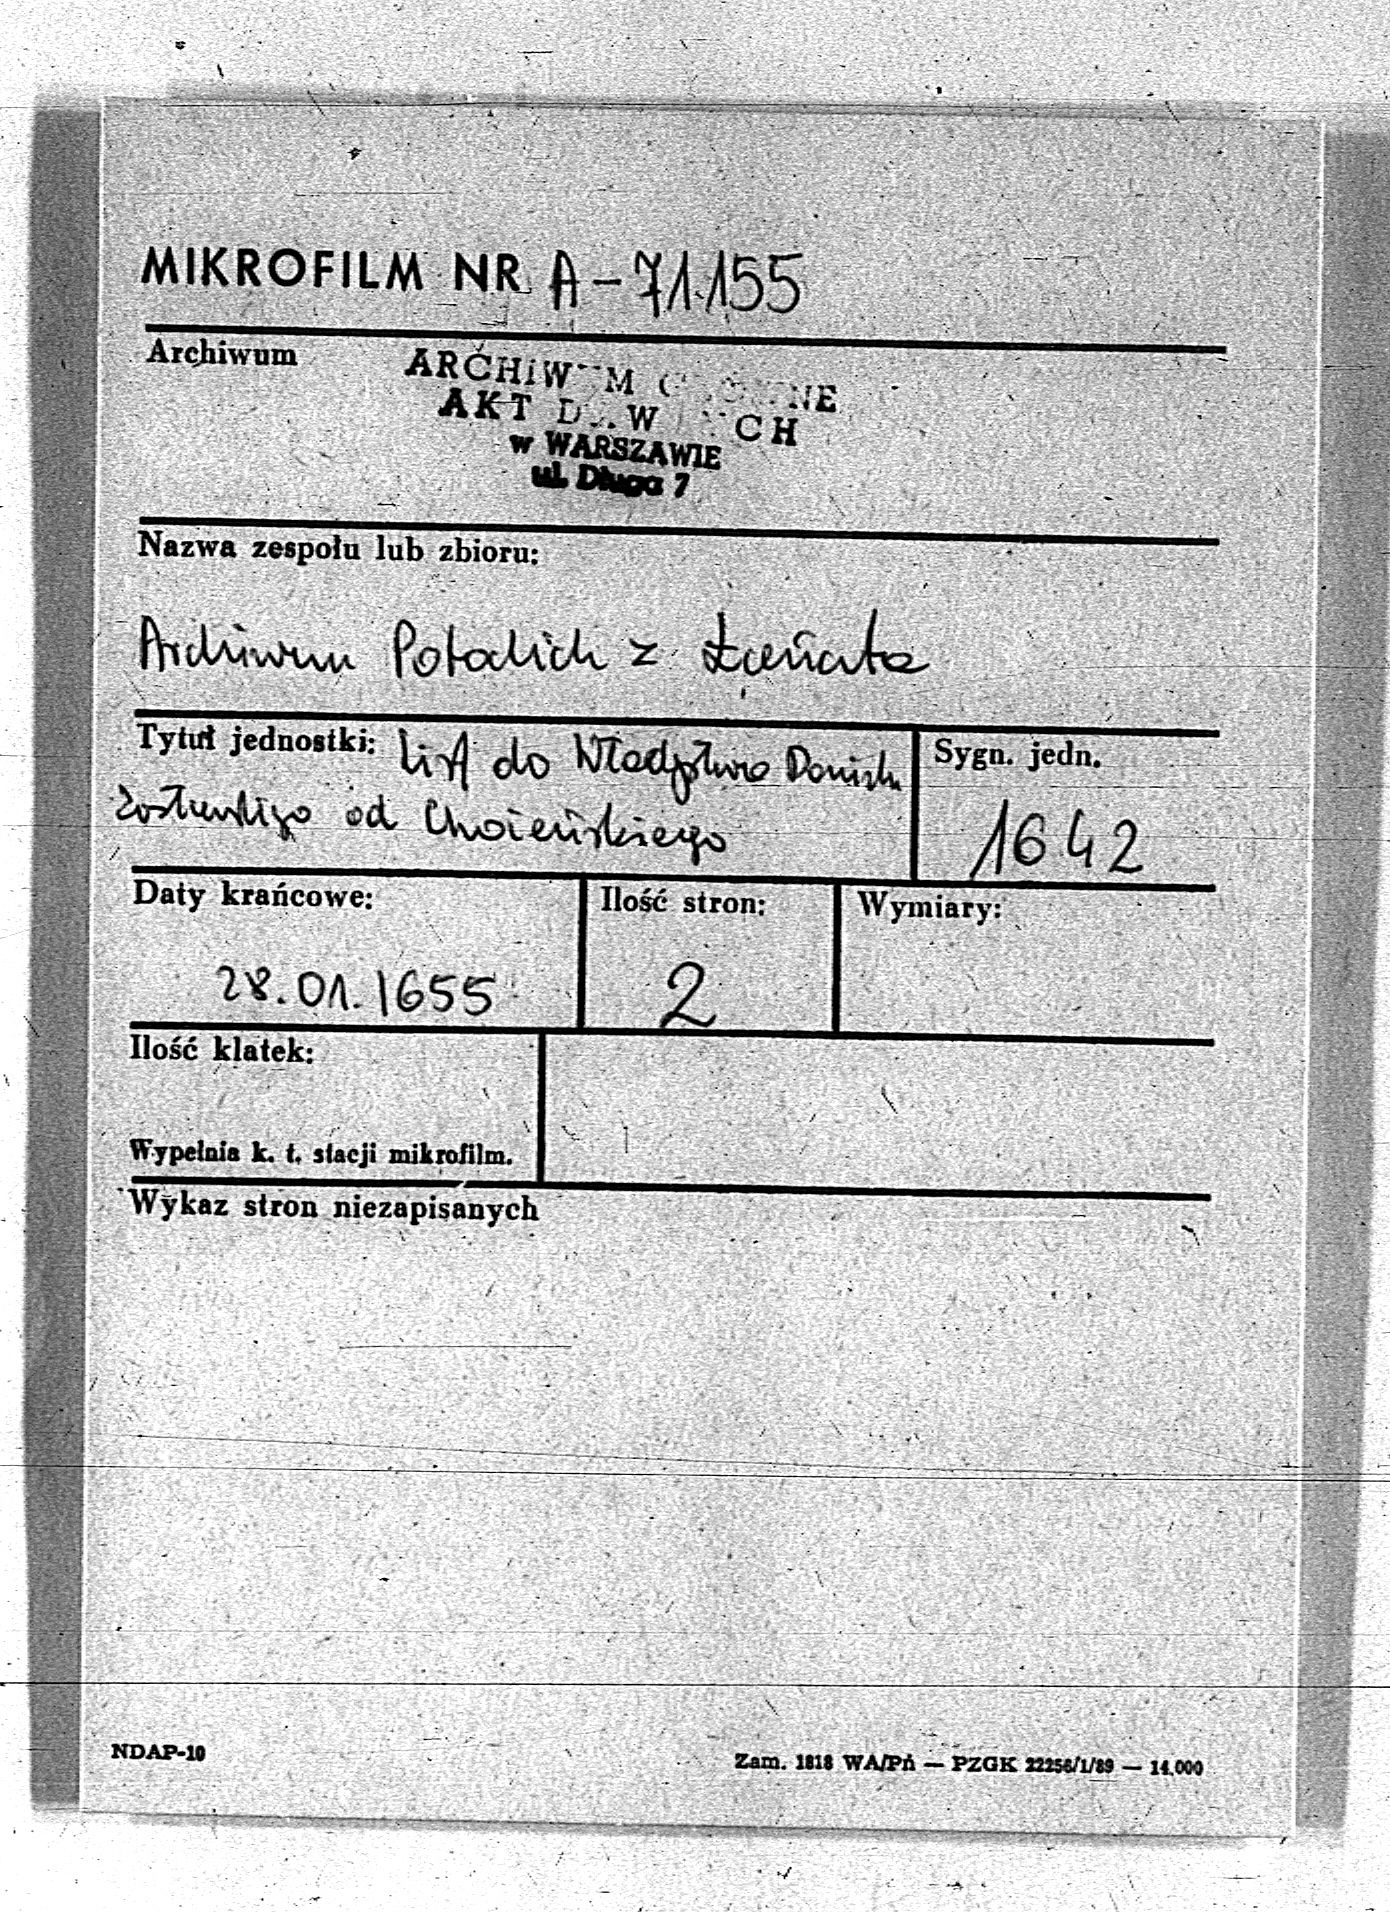 MIKROFILM NR A-71.155
Archiwum
ARCHiW M NE
AKT D W CH
w WARSZAWIE
ul. Długa 7
Nazwa zespołu lub zbioru:
Archiwum Potockich z Łańcuta
Tytuł jednostki: List do Władysława Dominika
Zasławskiego od Choieńskiego
Sygn. jedn.
1642
Daty krańcowe:
28.01.1655
Ilość stron:
2
Wymiary:
Ilość klatek:
Wypełnia k. t. stacji mikrofilm.
Wykaz stron niezapisanych
NDAP-10
Zam. 1818 WA/Pń — PZGK 22256/1/89 — 14.000